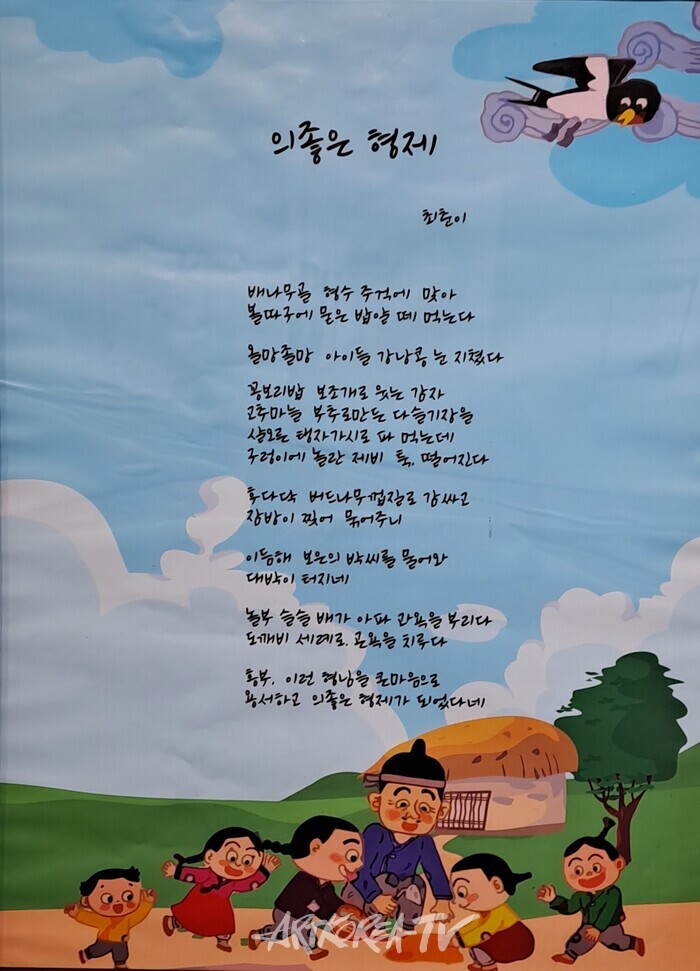 의좋은 형제
최춘이
배나무골 형수 주걱에 맞아
볼따구에 묻은 밥알 떼 먹는다
올망졸망 아이들 강낭콩 눈 지쳤다
꽁보리밥 보조개로 웃는 감자
고추마늘 부추로만든 다슬기장을
살오른 탱자가시로 파 먹는데
구렁이에 놀란 제비 툭, 떨어진다
후다닥 버드나무껍질로 감싸고
장방이 찢어 묶어주니
이듬해 보은의 박씨를 물어와
대박이 터지네
놀부 슬슬 배가 아파 과욕을 부리다
도깨비 세례로 곤욕을 치루다
흥부, 이런 형님을 큰마음으로
용서하고 의좋은 형제가 되었다네
ARTKOREA TV